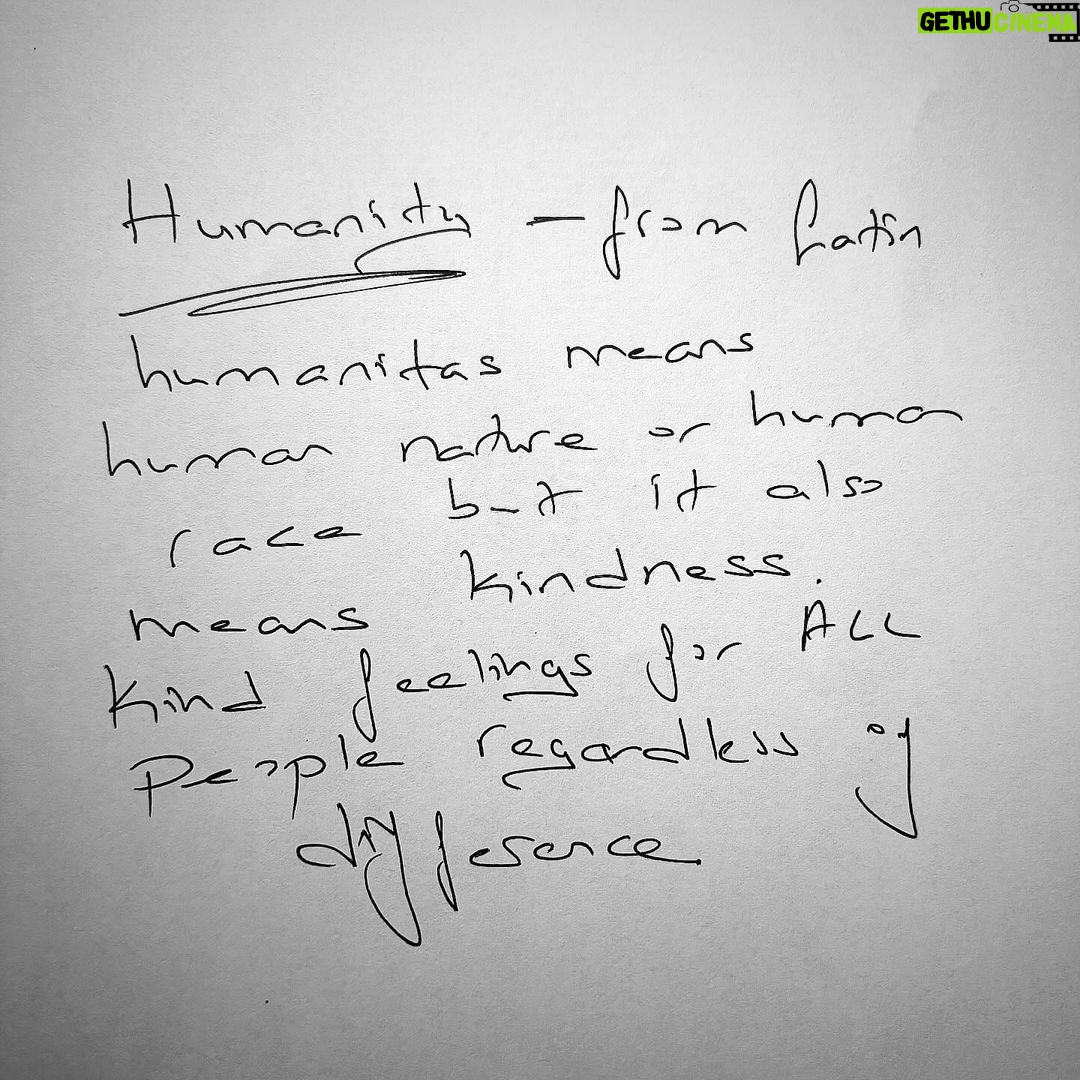 GETHU CINEMA
Humanity - from Latin
humanitas means
human nature or human
race but it also
means kindness.
Kind feelings for ALL
People regardless of
difference